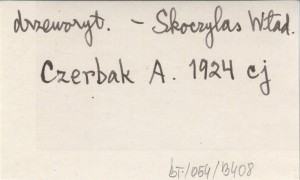 drzeworyt. - Skoczylas Wład.
Czerbak A. 1924 cj
bT-/054/13408